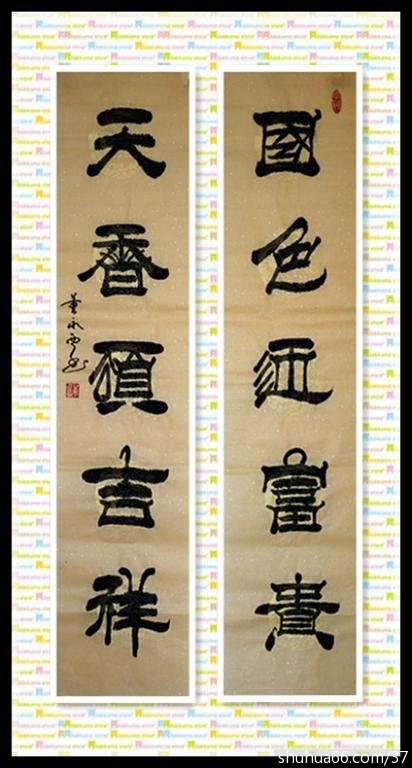 國色迎富貴
天香頌吉祥
董永西
shuhua66.com/37